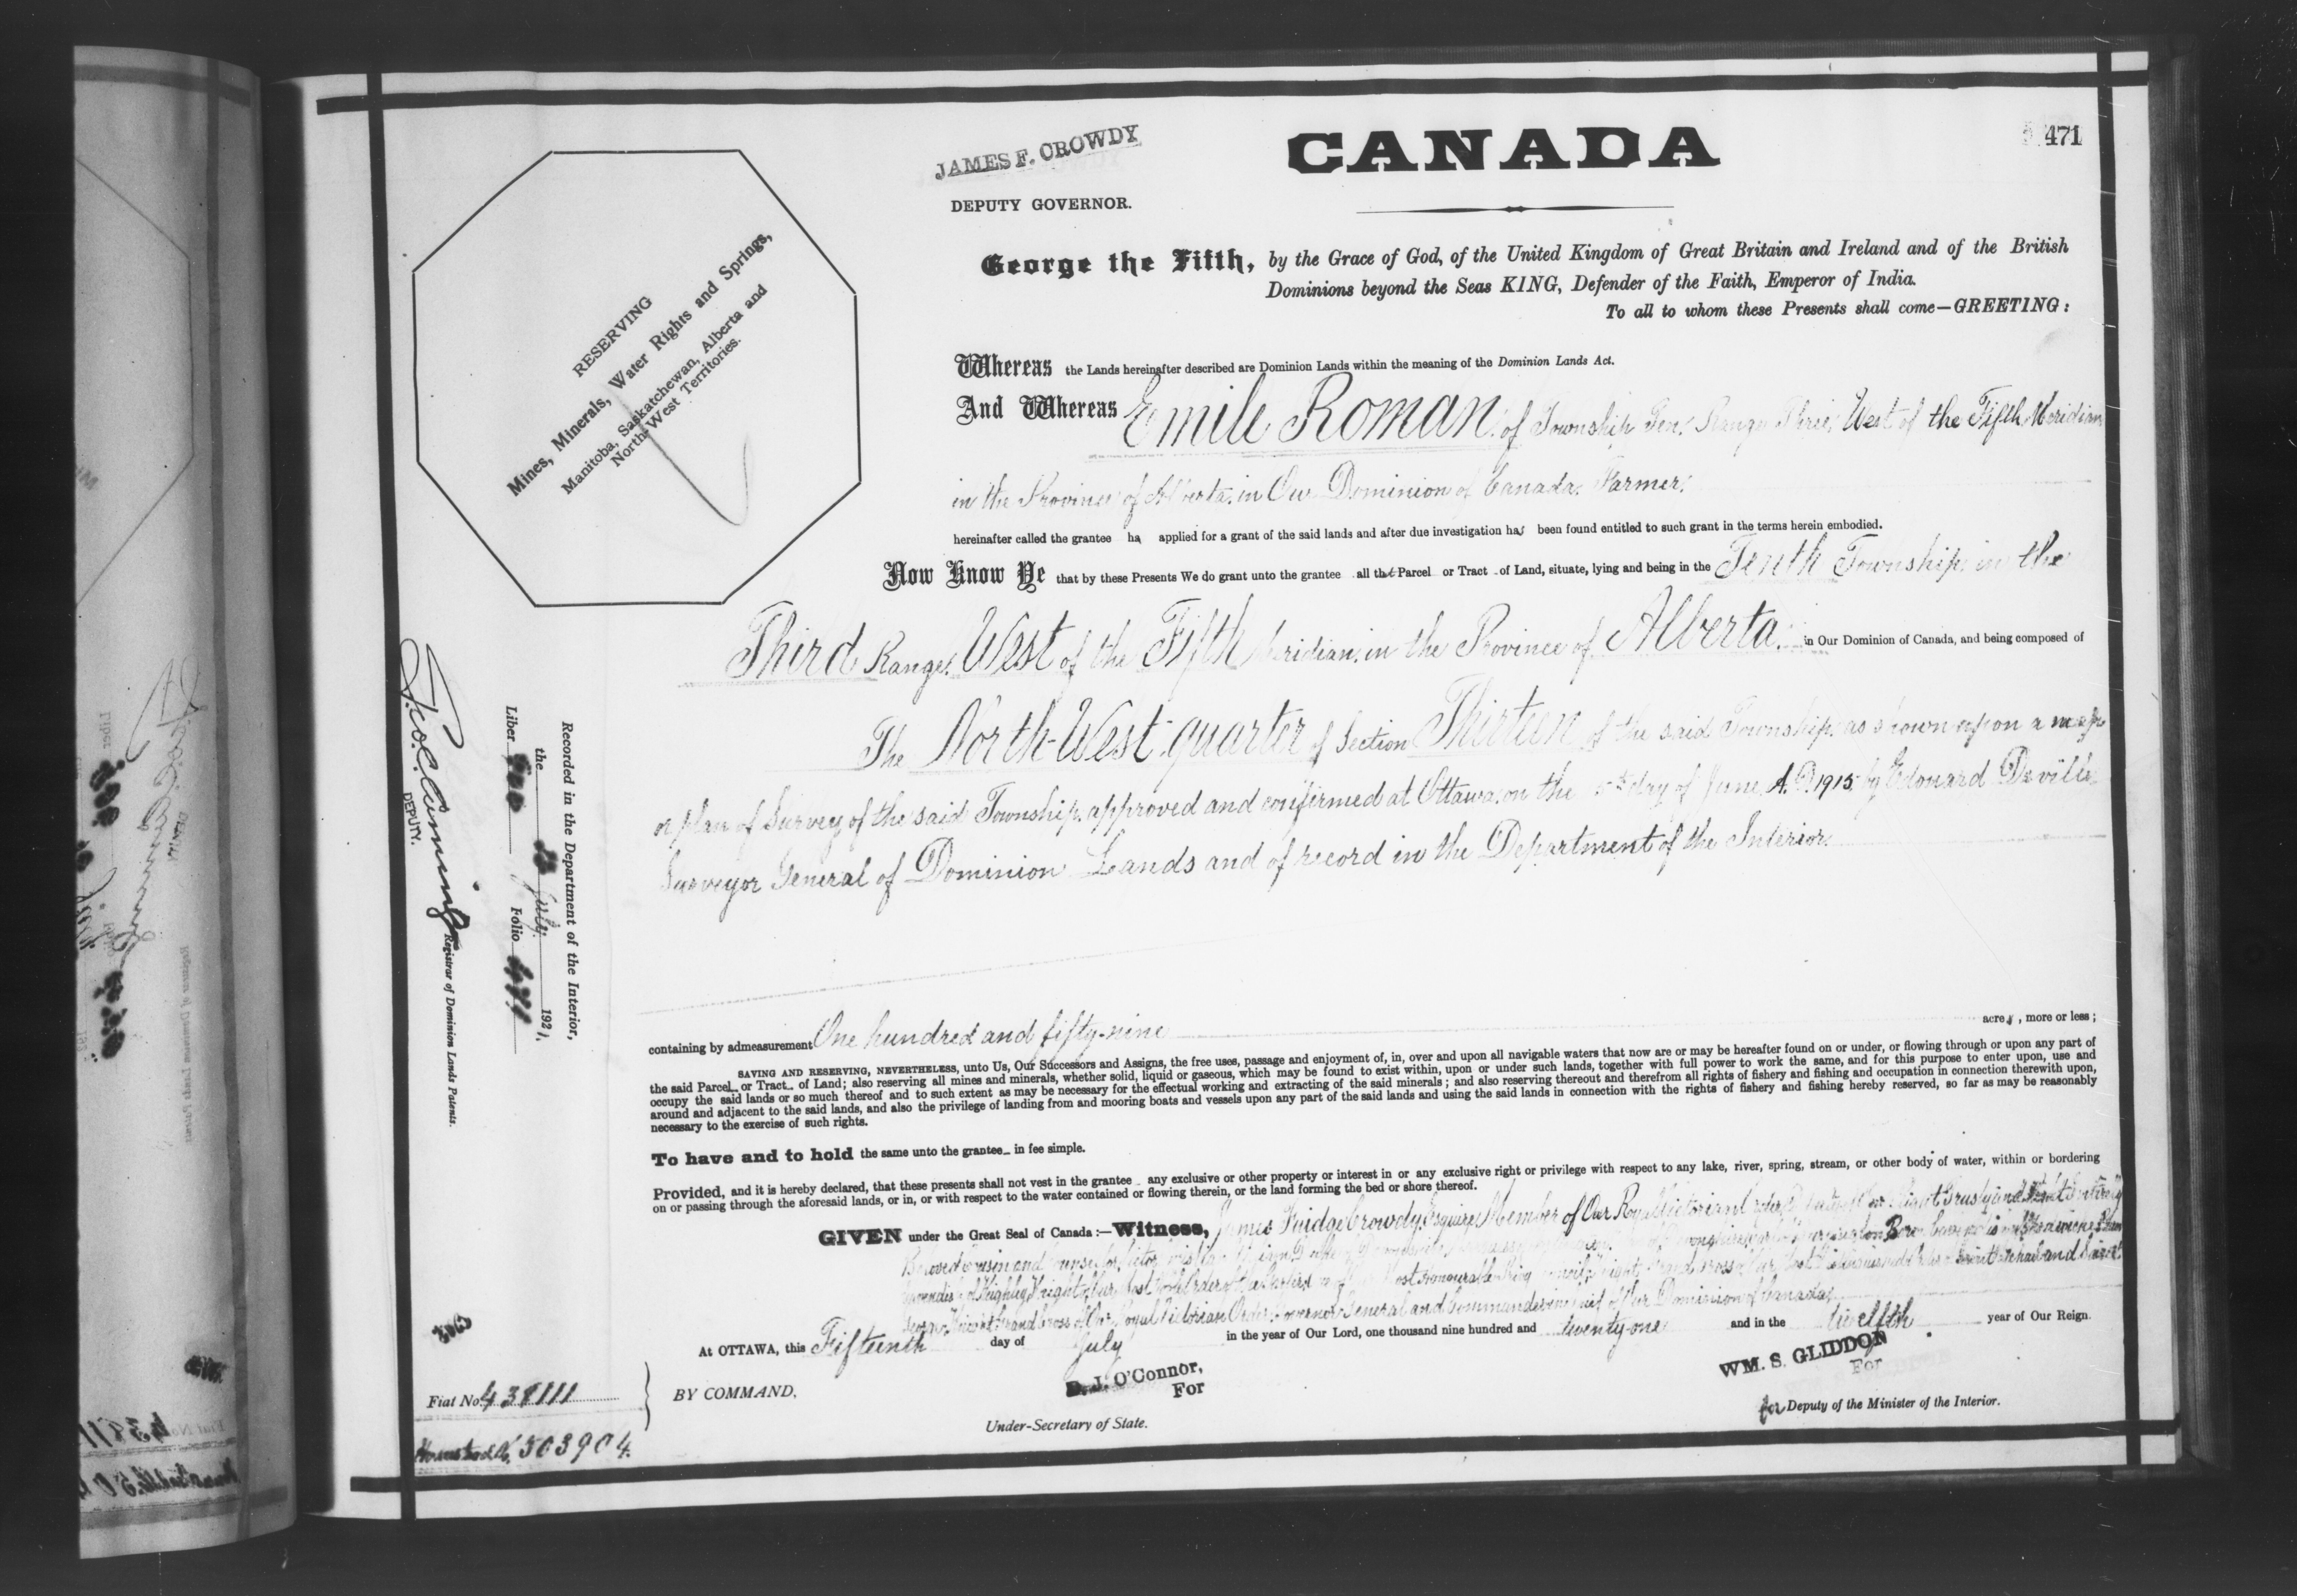 471
CANADA
JAMES F. CROWDY
DEPUTY GOVERNOR.
RESERVING
Mines, Minerals, Water Rights and Springs,
Manitoba, Saskatchewan, Alberta and
North-West Territories.
George the Fifth, by the Grace of God, of the United Kingdom of Great Britain and Ireland and of the British
Dominions beyond the Seas KING, Defender of the Faith, Emperor of India.
To all to whom these Presents shall come—GREETING:
Whereas the Lands hereinafter described are Dominion Lands within the meaning of the Dominion Lands Act.
And Whereas Emile Roman of Township Ten, Range Three, West of the Fifth Meridian
in the Province of Alberta, in Our Dominion of Canada, Farmer,
hereinafter called the grantee has applied for a grant of the said lands and after due investigation has been found entitled to such grant in the terms herein embodied.
Now Know Ye that by these Presents We do grant unto the grantee all that Parcel or Tract of Land, situate, lying and being in the Tenth Township, in the
Third Range, West of the Fifth Meridian, in the Province of Alberta, in Our Dominion of Canada, and being composed of
The North-West quarter of Section Thirteen of the said Township, as shown upon a map
or plan of Survey of the said Township, approved and confirmed at Ottawa, on the day of June, A.D. 1915, by Edouard Deville
Surveyor General of Dominion Lands and of record in the Department of the Interior.
containing by admeasurement One hundred and fifty-nine acres, more or less;
SAVING AND RESERVING, NEVERTHELESS, unto Us, Our Successors and Assigns, the free uses, passage and enjoyment of, in, over and upon all navigable waters that now are or may be hereafter found on or under, or flowing through or upon any part of
the said Parcel or Tract of Land; also reserving all mines and minerals, whether solid, liquid or gaseous, which may be found to exist within, upon or under such lands, together with full power to work the same, and for this purpose to enter upon, use and
occupy the said lands or so much thereof and to such extent as may be necessary for the effectual working and extracting of the said minerals; and also reserving thereout and therefrom all rights of fishery and fishing and occupation in connection therewith upon,
around and adjacent to the said lands, and also the privilege of landing from and mooring boats and vessels upon any part of the said lands and using the said lands in connection with the rights of fishery and fishing hereby reserved, so far as may be reasonably
necessary to the exercise of such rights.
To have and to hold the same unto the grantee in fee simple.
Provided, and it is hereby declared, that these presents shall not vest in the grantee any exclusive or other property or interest in or any exclusive right or privilege with respect to any lake, river, spring, stream, or other body of water, within or bordering
on or passing through the aforesaid lands, or in, or with respect to the water contained or flowing therein, or the land forming the bed or shore thereof.
GIVEN under the Great Seal of Canada:—Witness, James Fuidge Crowdy, Esquire, Member of Our Royal Victorian Right Trusty and
Beloved Cousin and
Knight of Our Most Noble Order of the Most Honourable
Knight Grand Cross of Our Royal Victorian Order, Governor General and Commander in Chief of Our Dominion of Canada,
At OTTAWA, this Fifteenth day of July in the year of Our Lord, one thousand nine hundred and twenty-one and in the twelfth year of Our Reign.
BY COMMAND,
D. J. O'Connor,
For
Under-Secretary of State.
WM. S. GLIDDON
For
for Deputy of the Minister of the Interior.
Recorded in the Department of the Interior,
the July 1921,
Liber Folio
DEPUTY. Registrar of Dominion Lands Patents.
Fiat No. 438111
Homestead 503904.